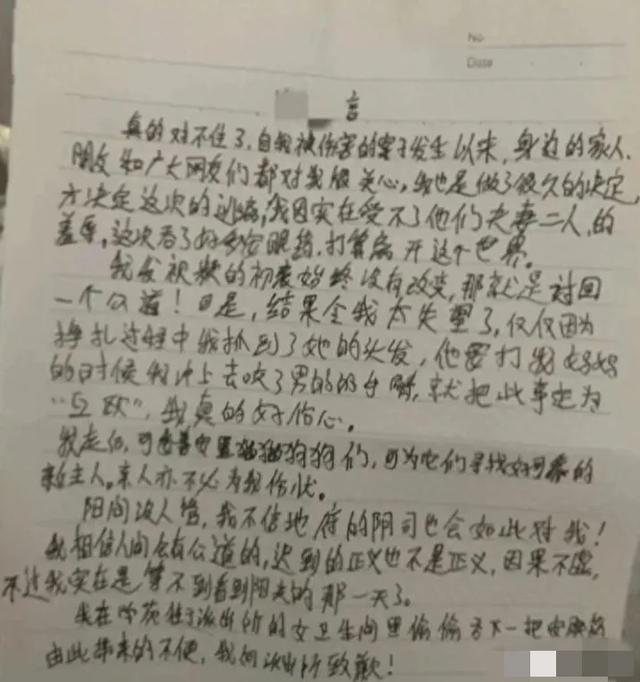 No
Date
言
真的对不住了,自我被伤害的案子发生以来,身边的家人、
朋友和广大网友们都对我很关心,我也是做了很久的决定,
方决定这次的逃离,我因实在受不了他们夫妻二人,的
羞辱,这次吞了好多安眠药,打算离开这个世界。
我发视频的初衷始终没有改变,那就是讨回
一个公道!但是,结果令我太失望了,仅仅因为
挣扎过程中我抓到了她的头发,他要打我妈妈
的时候我冲上去咬了男的的手臂,就把此事定为
“互殴”,我真的好伤心。
我走后,可善安置猫猫狗狗们,可为它们寻找好可靠的
新主人。亲人亦不必为我伤忧。
阳间没人管,我不信地府的阴司也会如此对我!
我相信人间会有公道的,迟到的正义也不是正义,因果不虚,
不过我实在是等不到看到阳光的那一天了。
我在派出所的女卫生间里偷偷吞下一把安眠药
由此带来的不便,我向派出所致歉!